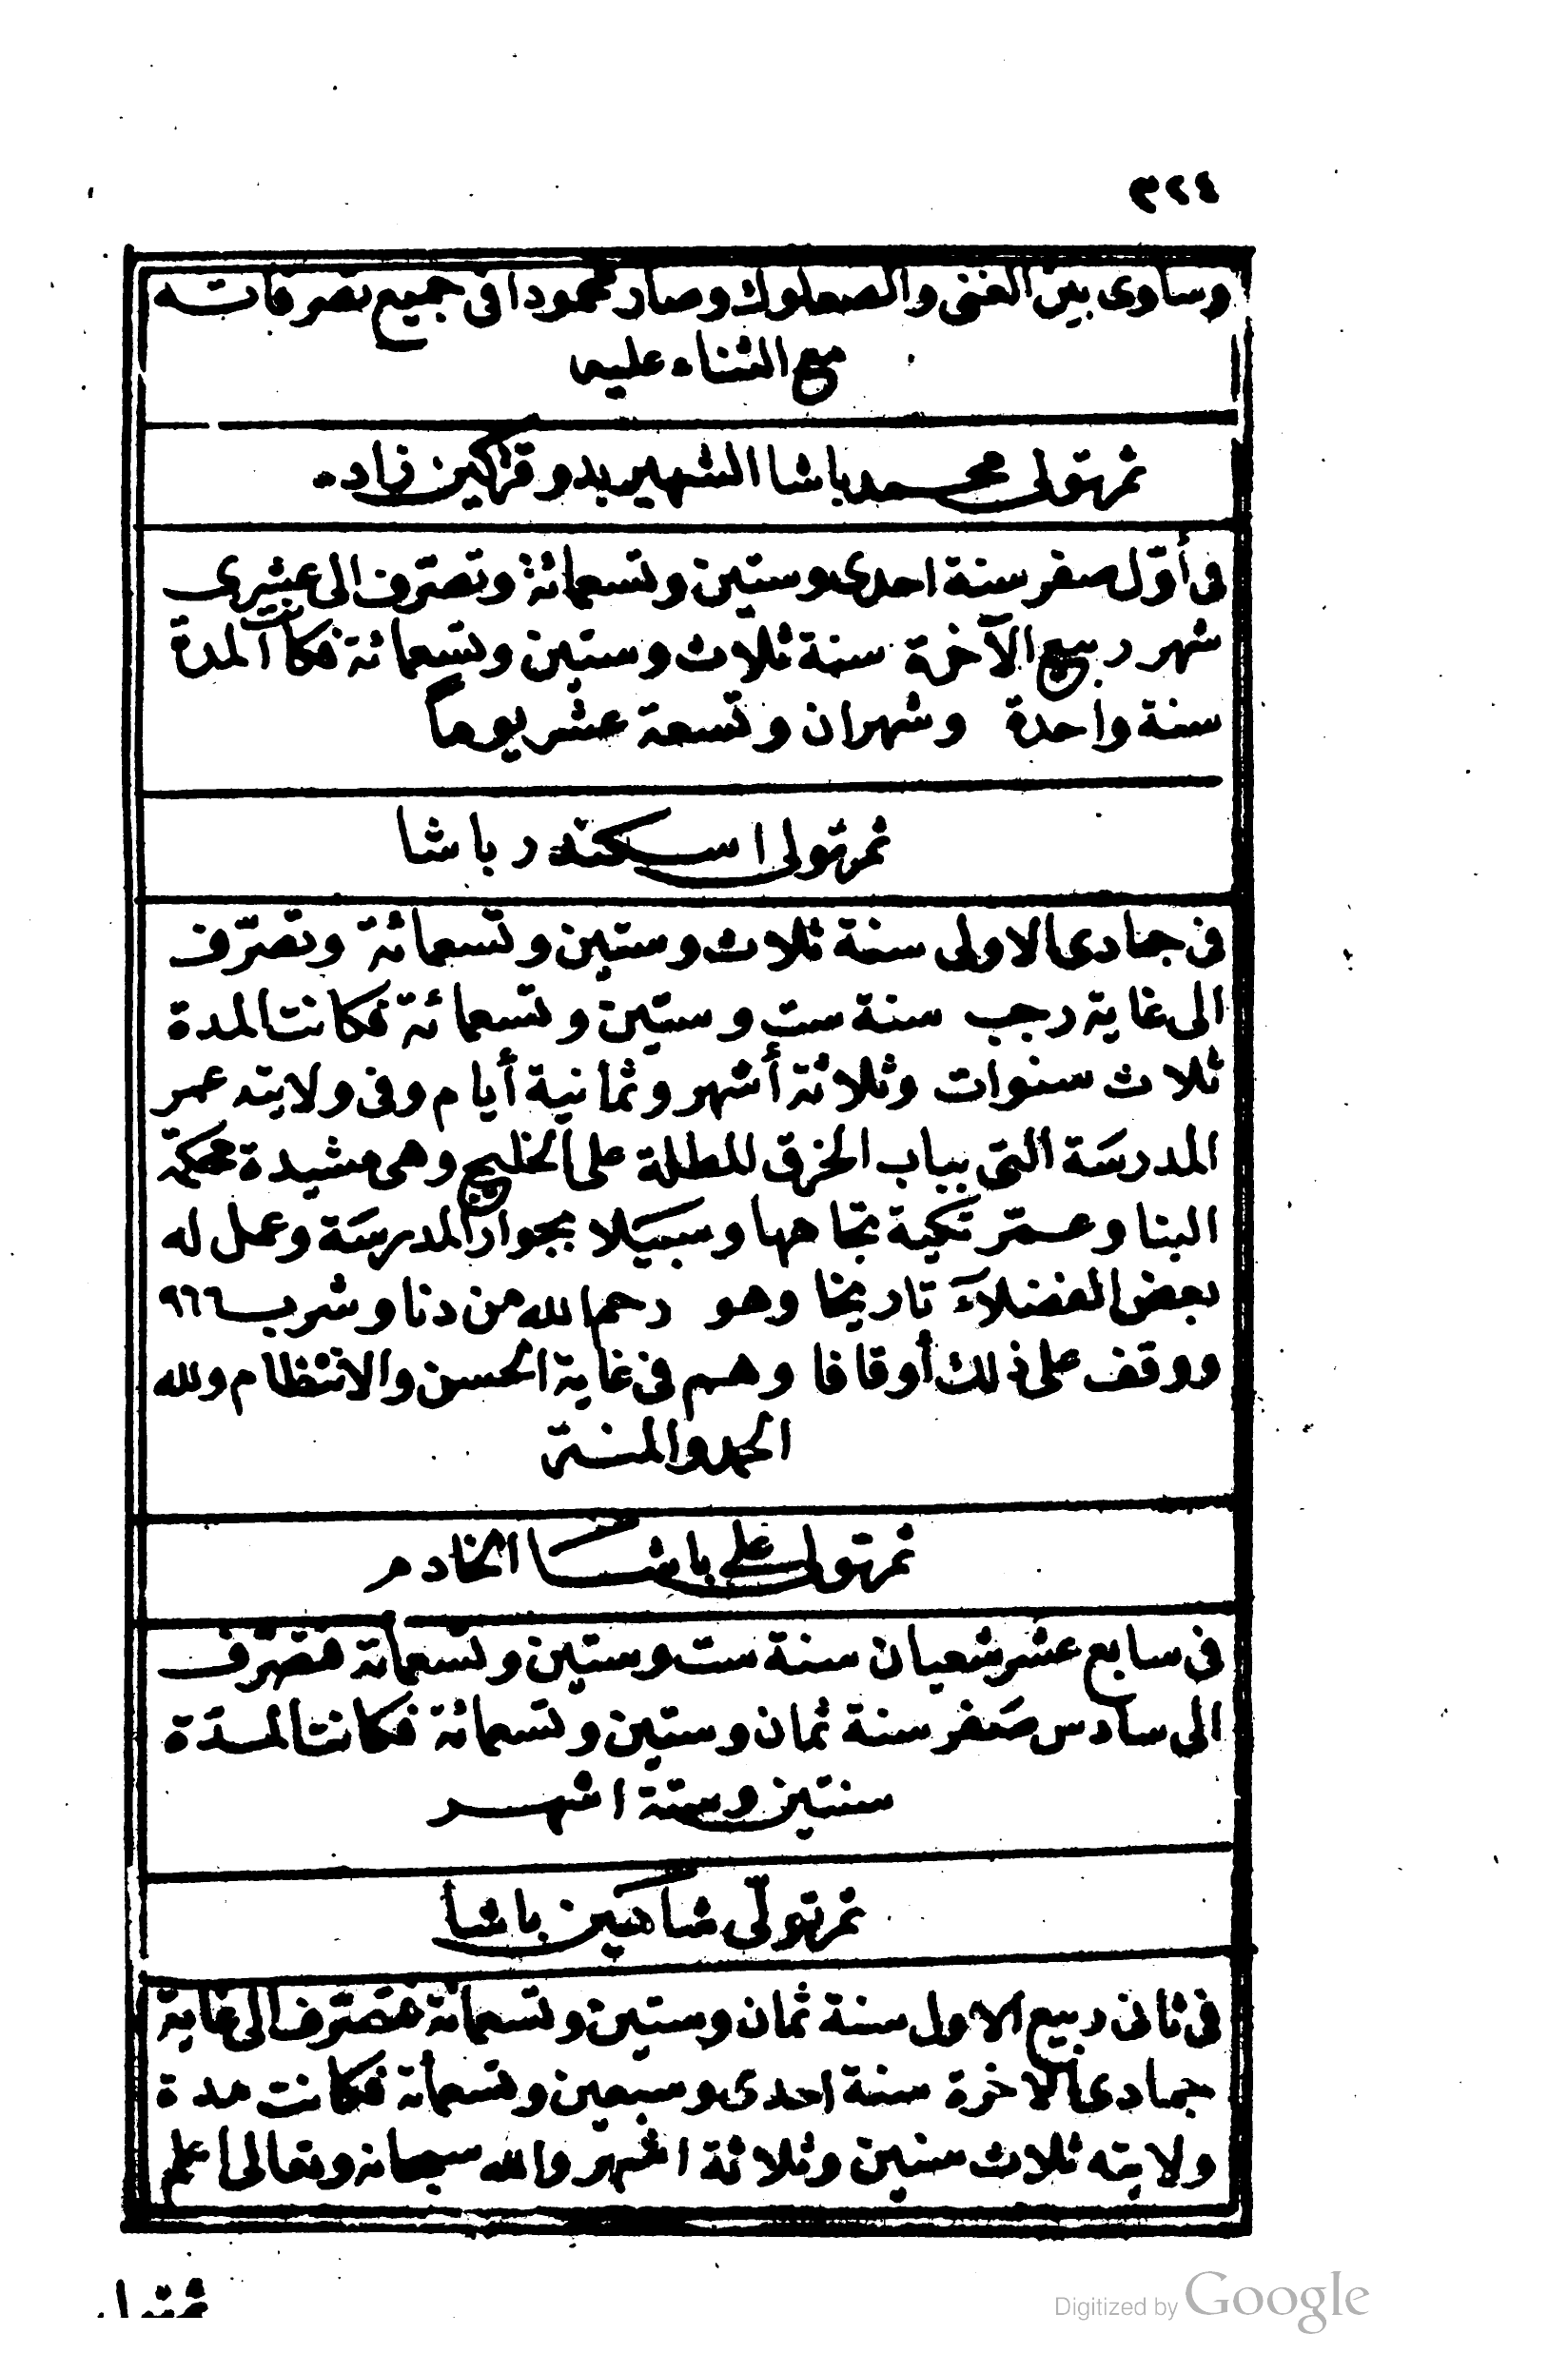 ٣٢٤
وساوى بين الغنى والصعلوك وصار محمودا فى جميع تصرفاته
مع الثناء عليه
ثم تولى محمد باشا الشهير بدوقزاكين زاده
فى أوّل صفر سنة احدى وستين وتسعمائة وتصرّف الى عشرى
شهر ربيع الآخرة سنة ثلاث وستين وتسعمائة فكانت المدة
سنة واحدة وشهران وتسعة عشر يوماً
ثم تولى اسكندر باشا
فى جمادى الاولى سنة ثلاث وستين وتسعمائة وتصرّف
الى غاية رجب سنة ست وستين وتسعمائة فكانت المدة
ثلاث سنوات وثلاثة أشهر وثمانية أيام وفى ولايته عمر
المدرسة التى بباب الخرق المطلة على الخليج وهى مشيدة محكمة
البنا وعمّر تكية تجاهها وسبيلا بجوار المدرسة وعمل له
بعض الفضلاء تاريخا وهو رحم الله من دنا وشرب ٩٦٦
ووقف على ذلك أوقافا وهم فى غاية الحسن والانتظام ولله
الحمد والمنة
ثم تولى على باشا الخادم
فى سابع عشر شعبان سنة ست وستين وتسعمائة فتصرّف
الى سادس صفر سنة ثمان وستين وتسعمائة فكانت المدّة
سنتين وستة اشهر
ثم تولّى شاهين باشا
فى ثانى ربيع الاول سنة ثمان وستين وتسعمائة فتصرّف الى غاية
جمادى الاخرة سنة احدى وسبعين وتسعمائة فكانت مدة
ولايته ثلاث سنين وثلاثة اشهر والله سبحانه وتعالى اعلم
ثم تولى
Digitized by Google